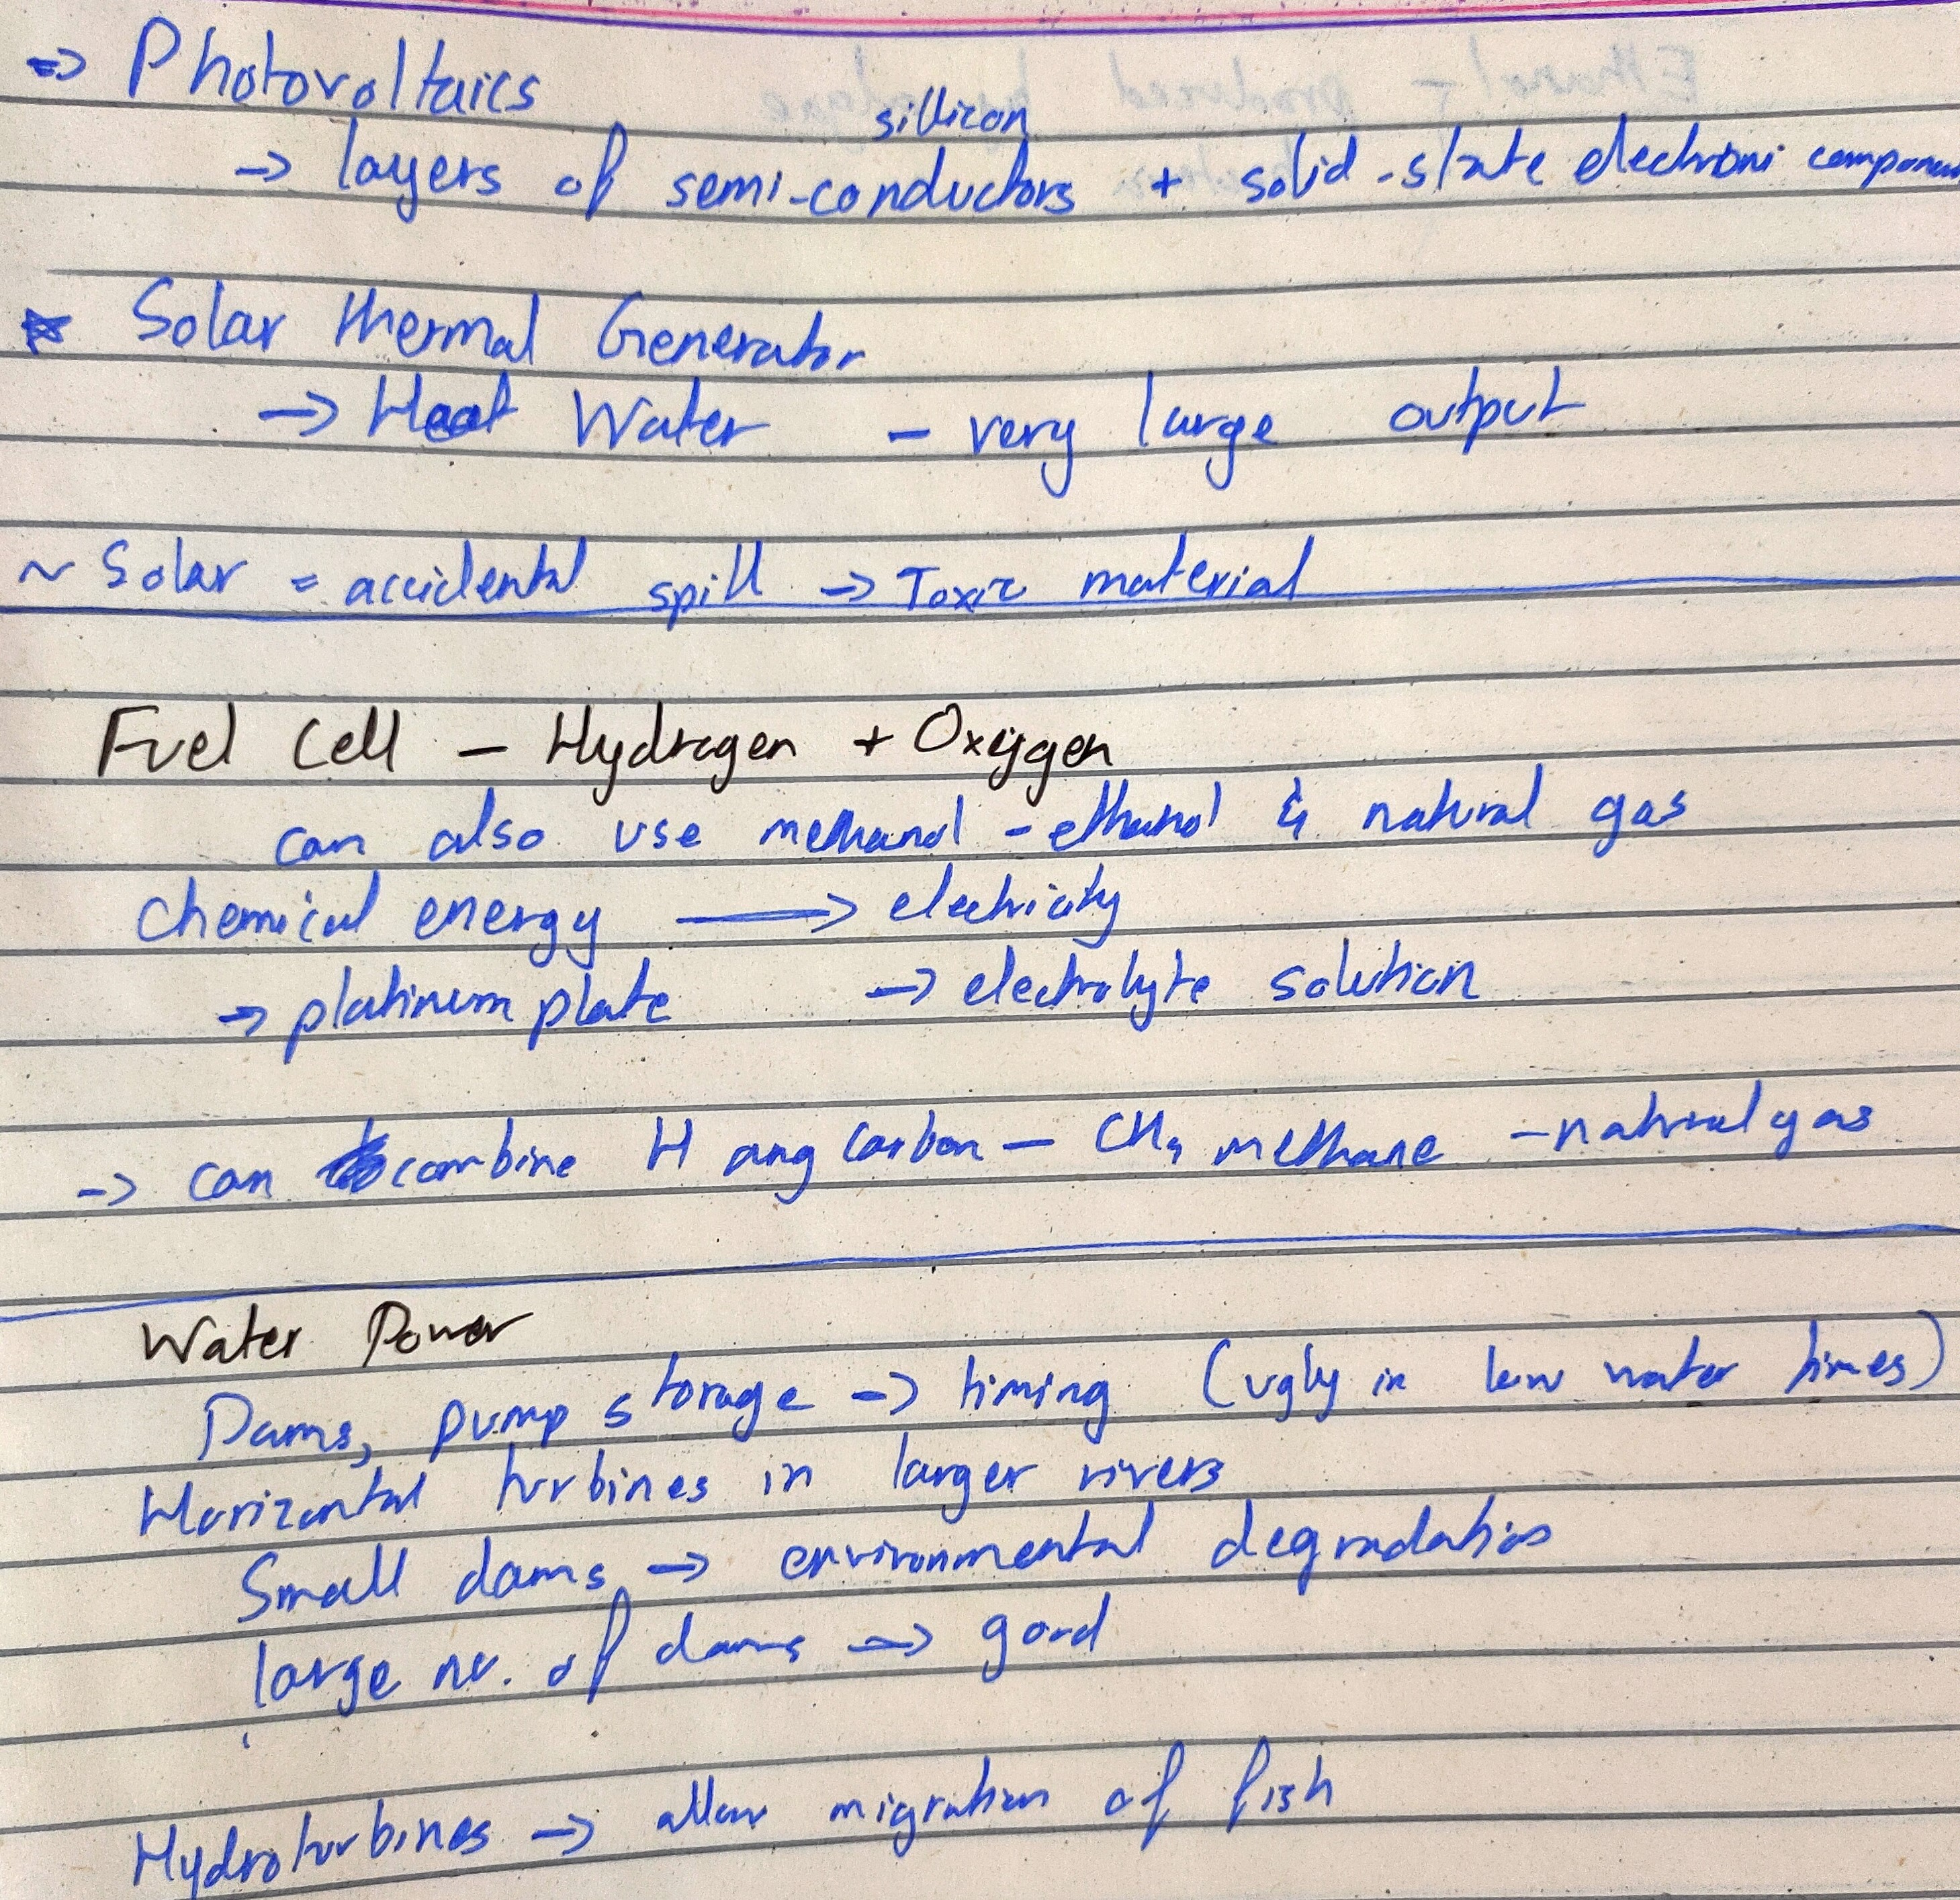 ⇒ Photovoltaics
sillicon
→ layers of semi-conductors + solid-state electroni component
Solar thermal Generator
→ Heat Water - very large output
~ Solar = accidental spill → Toxic material
Fuel Cell - Hydrogen + Oxygen
can also use methanol - ethanol & natural gas
Chemical energy → electricity
→ platinum plate → electrolyte solution
→ can combine H ang Carbon - CH4 methane - natural gas
Water Power
Dams, pump storage → timing (ugly in low water times)
Horizontal turbines in larger rivers
Small dams → environmental degradation
large no. of dams → good
Hydroturbines → allow migration of fish